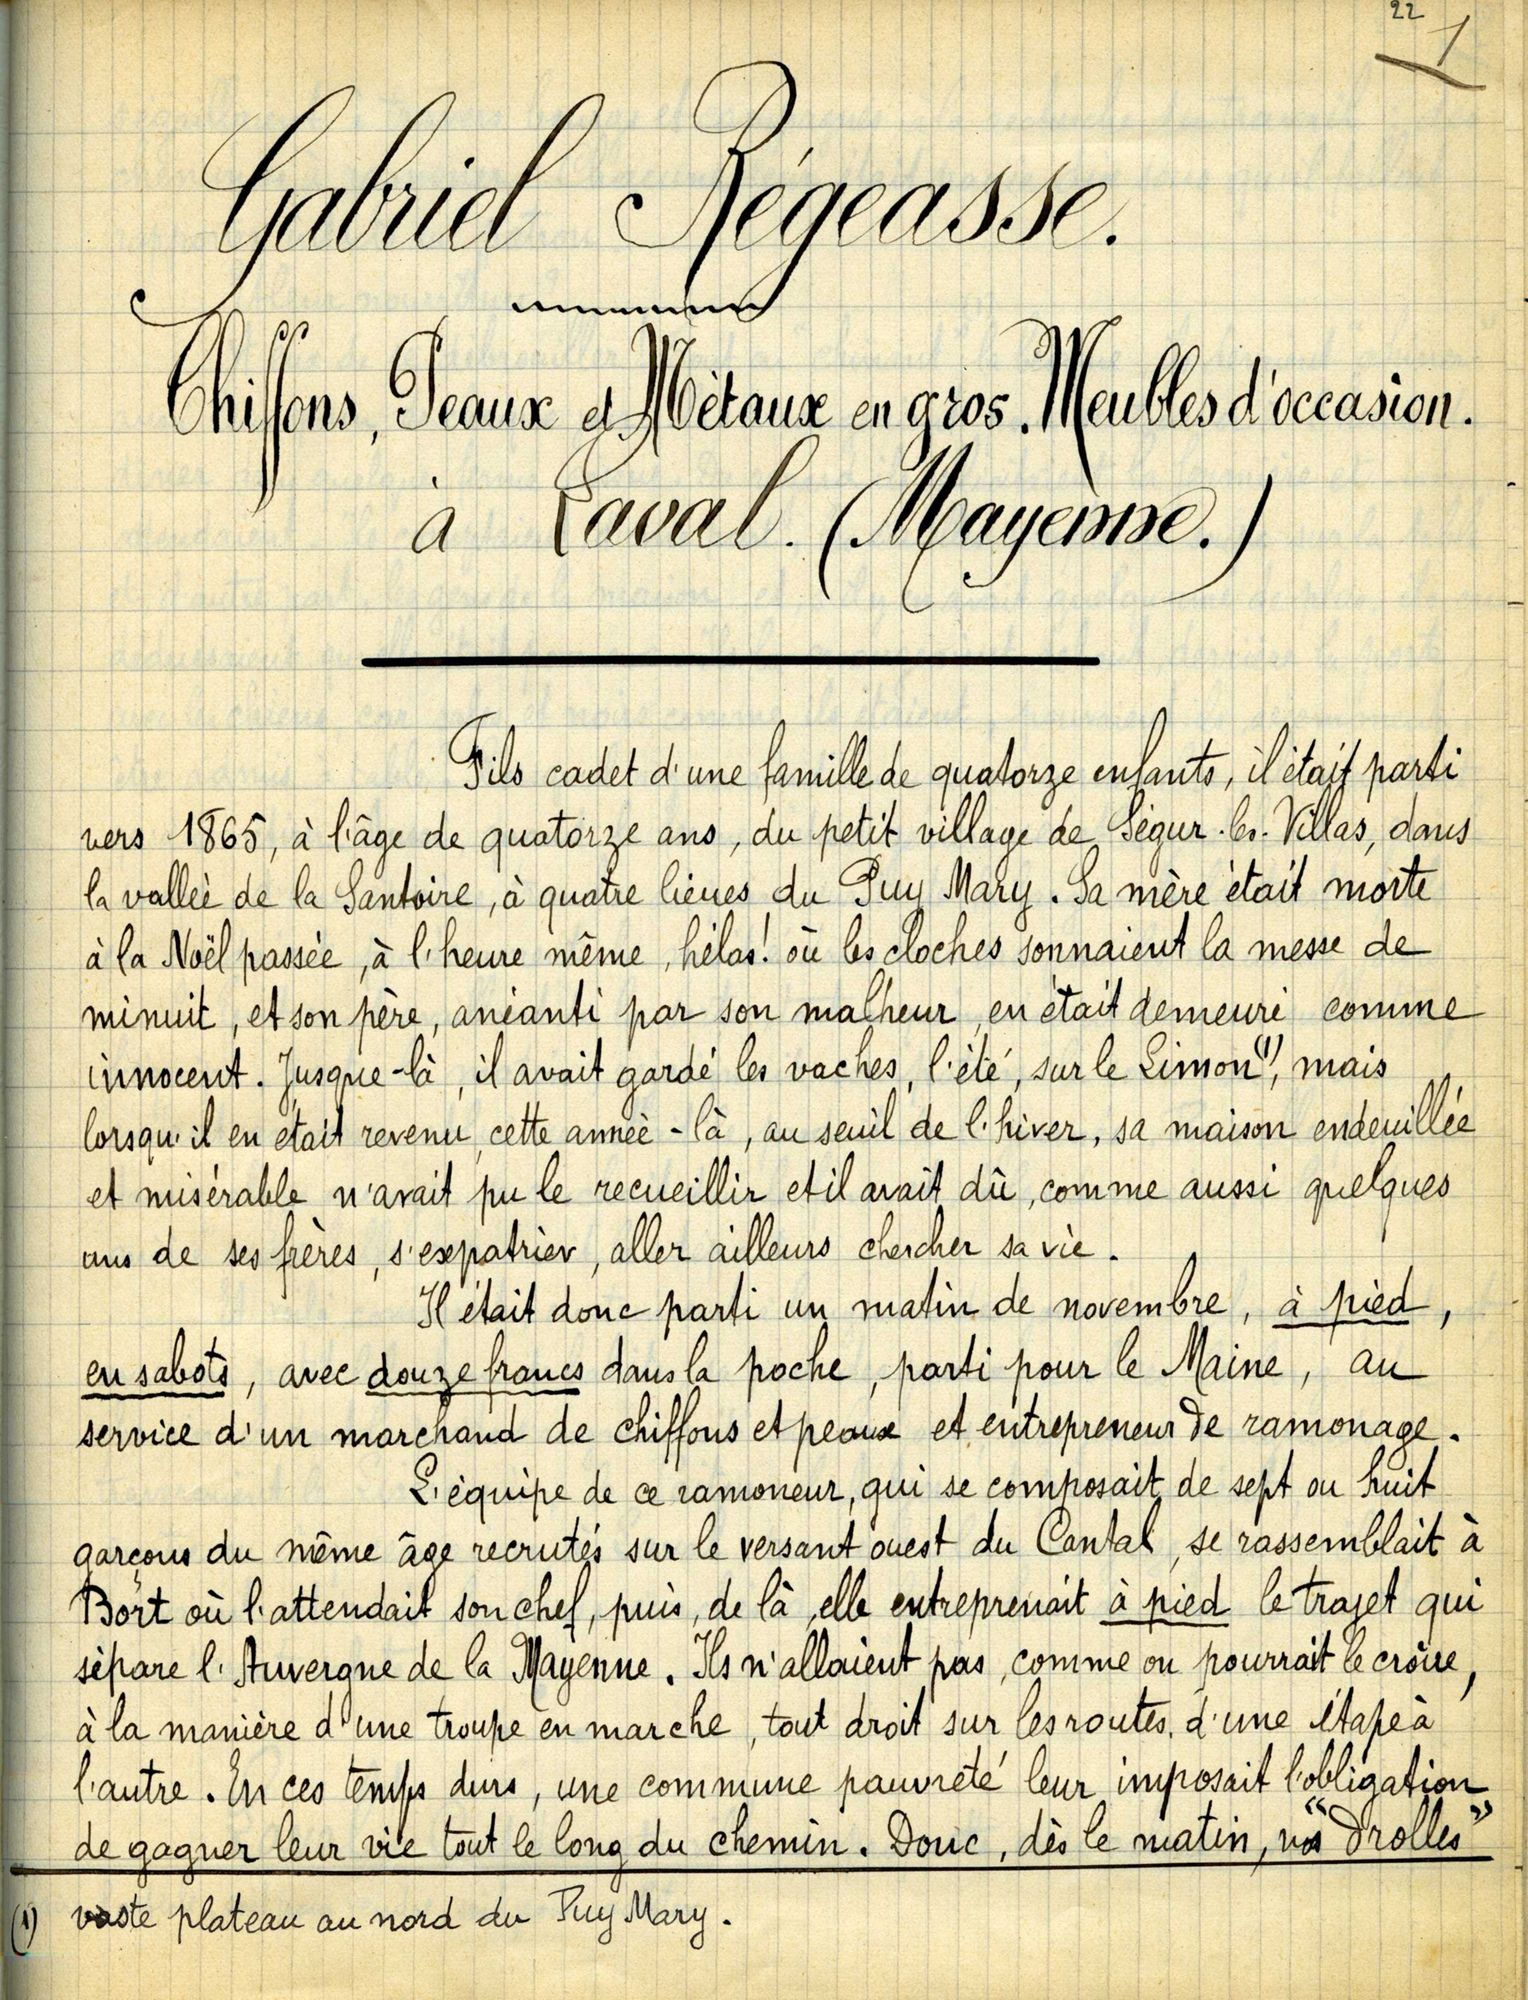 22
1
Gabriel Régeasse.
Chiffons, Peaux et Métaux en gros. Meubles d'occasion.
à Laval. (Mayenne.)
Fils cadet d'une famille de quatorze enfants, il était parti
vers 1865, à l'âge de quatorze ans, du petit village de Ségur-les-Villas, dans
la vallée de la Santoire, à quatre lieues du Puy Mary. Sa mère était morte
à la Noël passée, à l'heure même, hélas! où les cloches sonnaient la messe de
minuit, et son père, anéanti par son malheur, en était demeuré comme
innocent. Jusque-là, il avait gardé les vaches, l'été, sur le Limon (1), mais
lorsqu'il en était revenu, cette année-là, au seuil de l'hiver, sa maison endeuillée
et misérable n'avait pu le recueillir et il avait dû, comme aussi quelques
uns de ses frères, s'expatrier, aller ailleurs chercher sa vie.
Il était donc parti un matin de novembre, à pied,
en sabots, avec douze francs dans la poche, parti pour le Maine, au
service d'un marchand de chiffons et peaux et entrepreneur de ramonage.
L'équipe de ce ramoneur, qui se composait de sept ou huit
garçons du même âge recrutés sur le versant ouest du Cantal, se rassemblait à
Bort où l'attendait son chef, puis, de là, elle entreprenait à pied le trajet qui
sépare l'Auvergne de la Mayenne. Ils n'allaient pas, comme on pourrait le croire,
à la manière d'une troupe en marche, tout droit sur les routes, d'une étape à
l'autre. En ces temps durs, une commune pauvreté leur imposait l'obligation
de gagner leur vie tout le long du chemin. Donc, dès le matin, nos "drolles"
(1) vaste plateau au nord du Puy Mary.